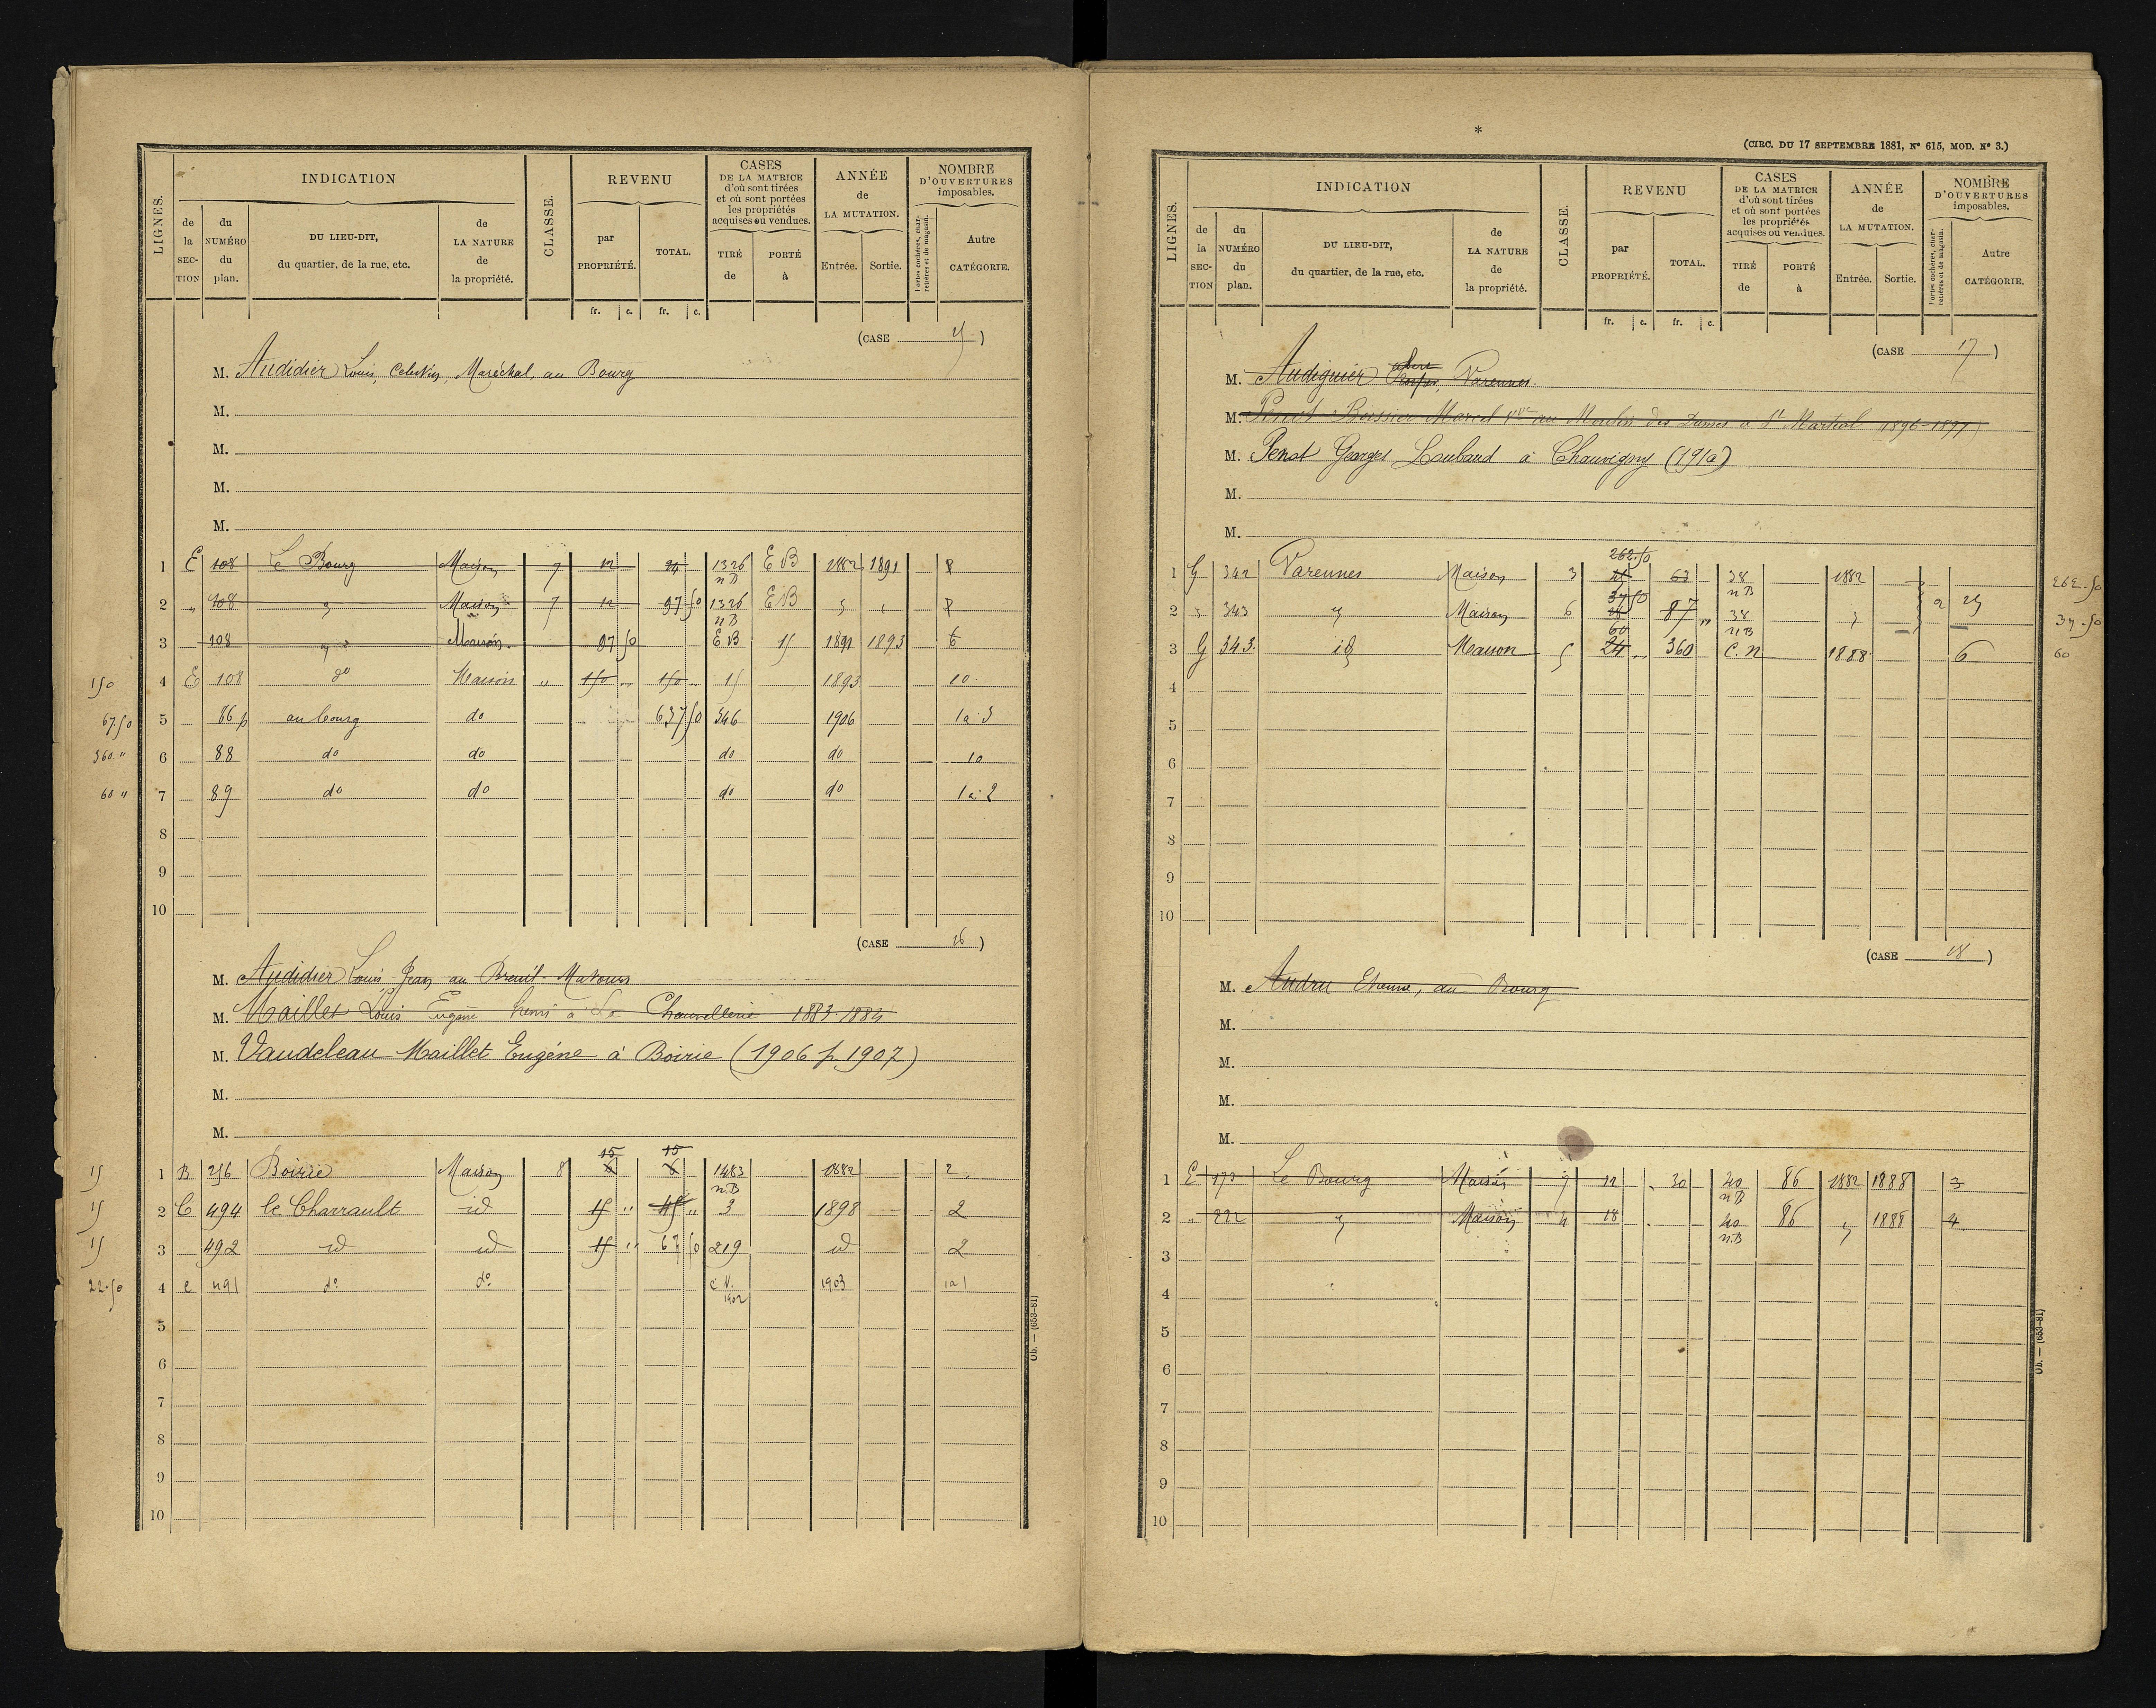 LIGNES.
INDICATION
de la SECTION
du NUMÉRO du plan.
DU LIEU-DIT, du quartier, de la rue, etc.
de LA NATURE de la propriété.
CLASSE.
REVENU
par PROPRIÉTÉ.
TOTAL.
fr. c. fr. c.
CASES DE LA MATRICE d'où sont tirées et où sont portées les propriétés acquises ou vendues.
TIRÉ de
PORTÉ à
ANNÉE de LA MUTATION.
Entrée. Sortie.
NOMBRE D'OUVERTURES imposables.
Portes cochères, charretières et de magasin.
Autre CATÉGORIE.
(CASE )
M. Audidier Louis, Maréchal, au Bourg
M.
M.
M.
M.
1 E 108 Le Bourg Maison 7 12 24 1326 n B E B 1882 1891 8
2 " 108 Maison 7 12 97 50 1326 n B E B 8
3 108 Maison 97 50 E B 15 1891 1893 6
150 4 E 108 do Maison " 150 150 15 1893 10
67.50 5 86 p au bourg do 637 50 346 1906 1a 3
360 " 6 88 do do do do 10
60 " 7 89 do do do do 1a 2
8
9
10
(CASE 16 )
M. Audidier Louis, Jean au Breuil-
M. Maillet Louis Eugène henri à La 1883-1884
M. Vaudeleau Maillet Eugéne à Boirie (1906 p. 1907)
M.
M.
15 1 B 256 Boirie Maison 8 15 6 15 6 1483 n.B 1882 2
15 2 C 494 le Charrault id 15 " 45 " 3 1898 2
15 3 492 id id 15 " 67 50 219 id 2
22.50 4 C 491 do do C.V. 1902 1903 1a1
5
6
7
8
9
10
Ob. — (653-81)
*
(CIRC. DU 17 SEPTEMBRE 1881, N° 615, MOD. N° 3.)
LIGNES.
INDICATION
de la SECTION
du NUMÉRO du plan.
DU LIEU-DIT, du quartier, de la rue, etc.
de LA NATURE de la propriété.
CLASSE.
REVENU
par PROPRIÉTÉ.
TOTAL.
fr. c. fr. c.
CASES DE LA MATRICE d'où sont tirées et où sont portées les propriétés acquises ou vendues.
TIRÉ de
PORTÉ à
ANNÉE de LA MUTATION.
Entrée. Sortie.
NOMBRE D'OUVERTURES imposables.
Portes cochères, charretières et de magasin.
Autre CATÉGORIE.
(CASE 17 )
M. Audiguier Varennes.
M. Penot Boissier Marcel au Moulin des Dames à St Martial (1896-1897)
M. Penot Georges Loubaud à Chauvigny (1910)
M.
M.
1 G 342 Varennes Maison 3 262.50 63 38 n B 1882 262.50
2 343 Maison 6 37 50 87 " 38 n B 2 25 37.50
3 G 343. id Maison 5 60 24 " 360 C. n 1888 6 60
4
5
6
7
8
9
10
(CASE 18 )
M. Audru Etienne, au Bourg
M.
M.
M.
M.
1 E 173 Le Bourg Maison 7 12 30 40 n B 86 1882 1888 3
2 " 222 Maison 4 18 40 n.B 86 1888 4
3
4
5
6
7
8
9
10
Ob. — (653-81)